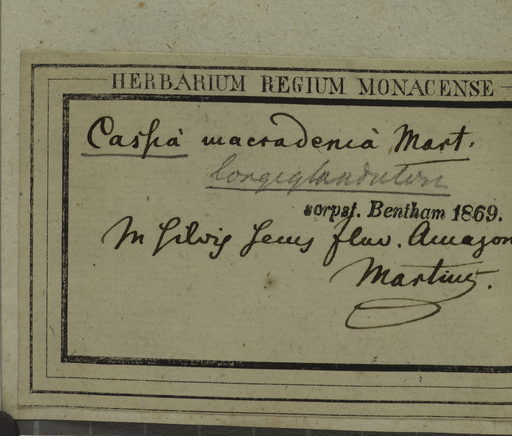 HERBARIUM REGIUM MONACENSE
Cassia macradenia Mart.
longiglandulosa
scrpst. Bentham 1869.
In silvis secus fluv. Amazon
Martius.